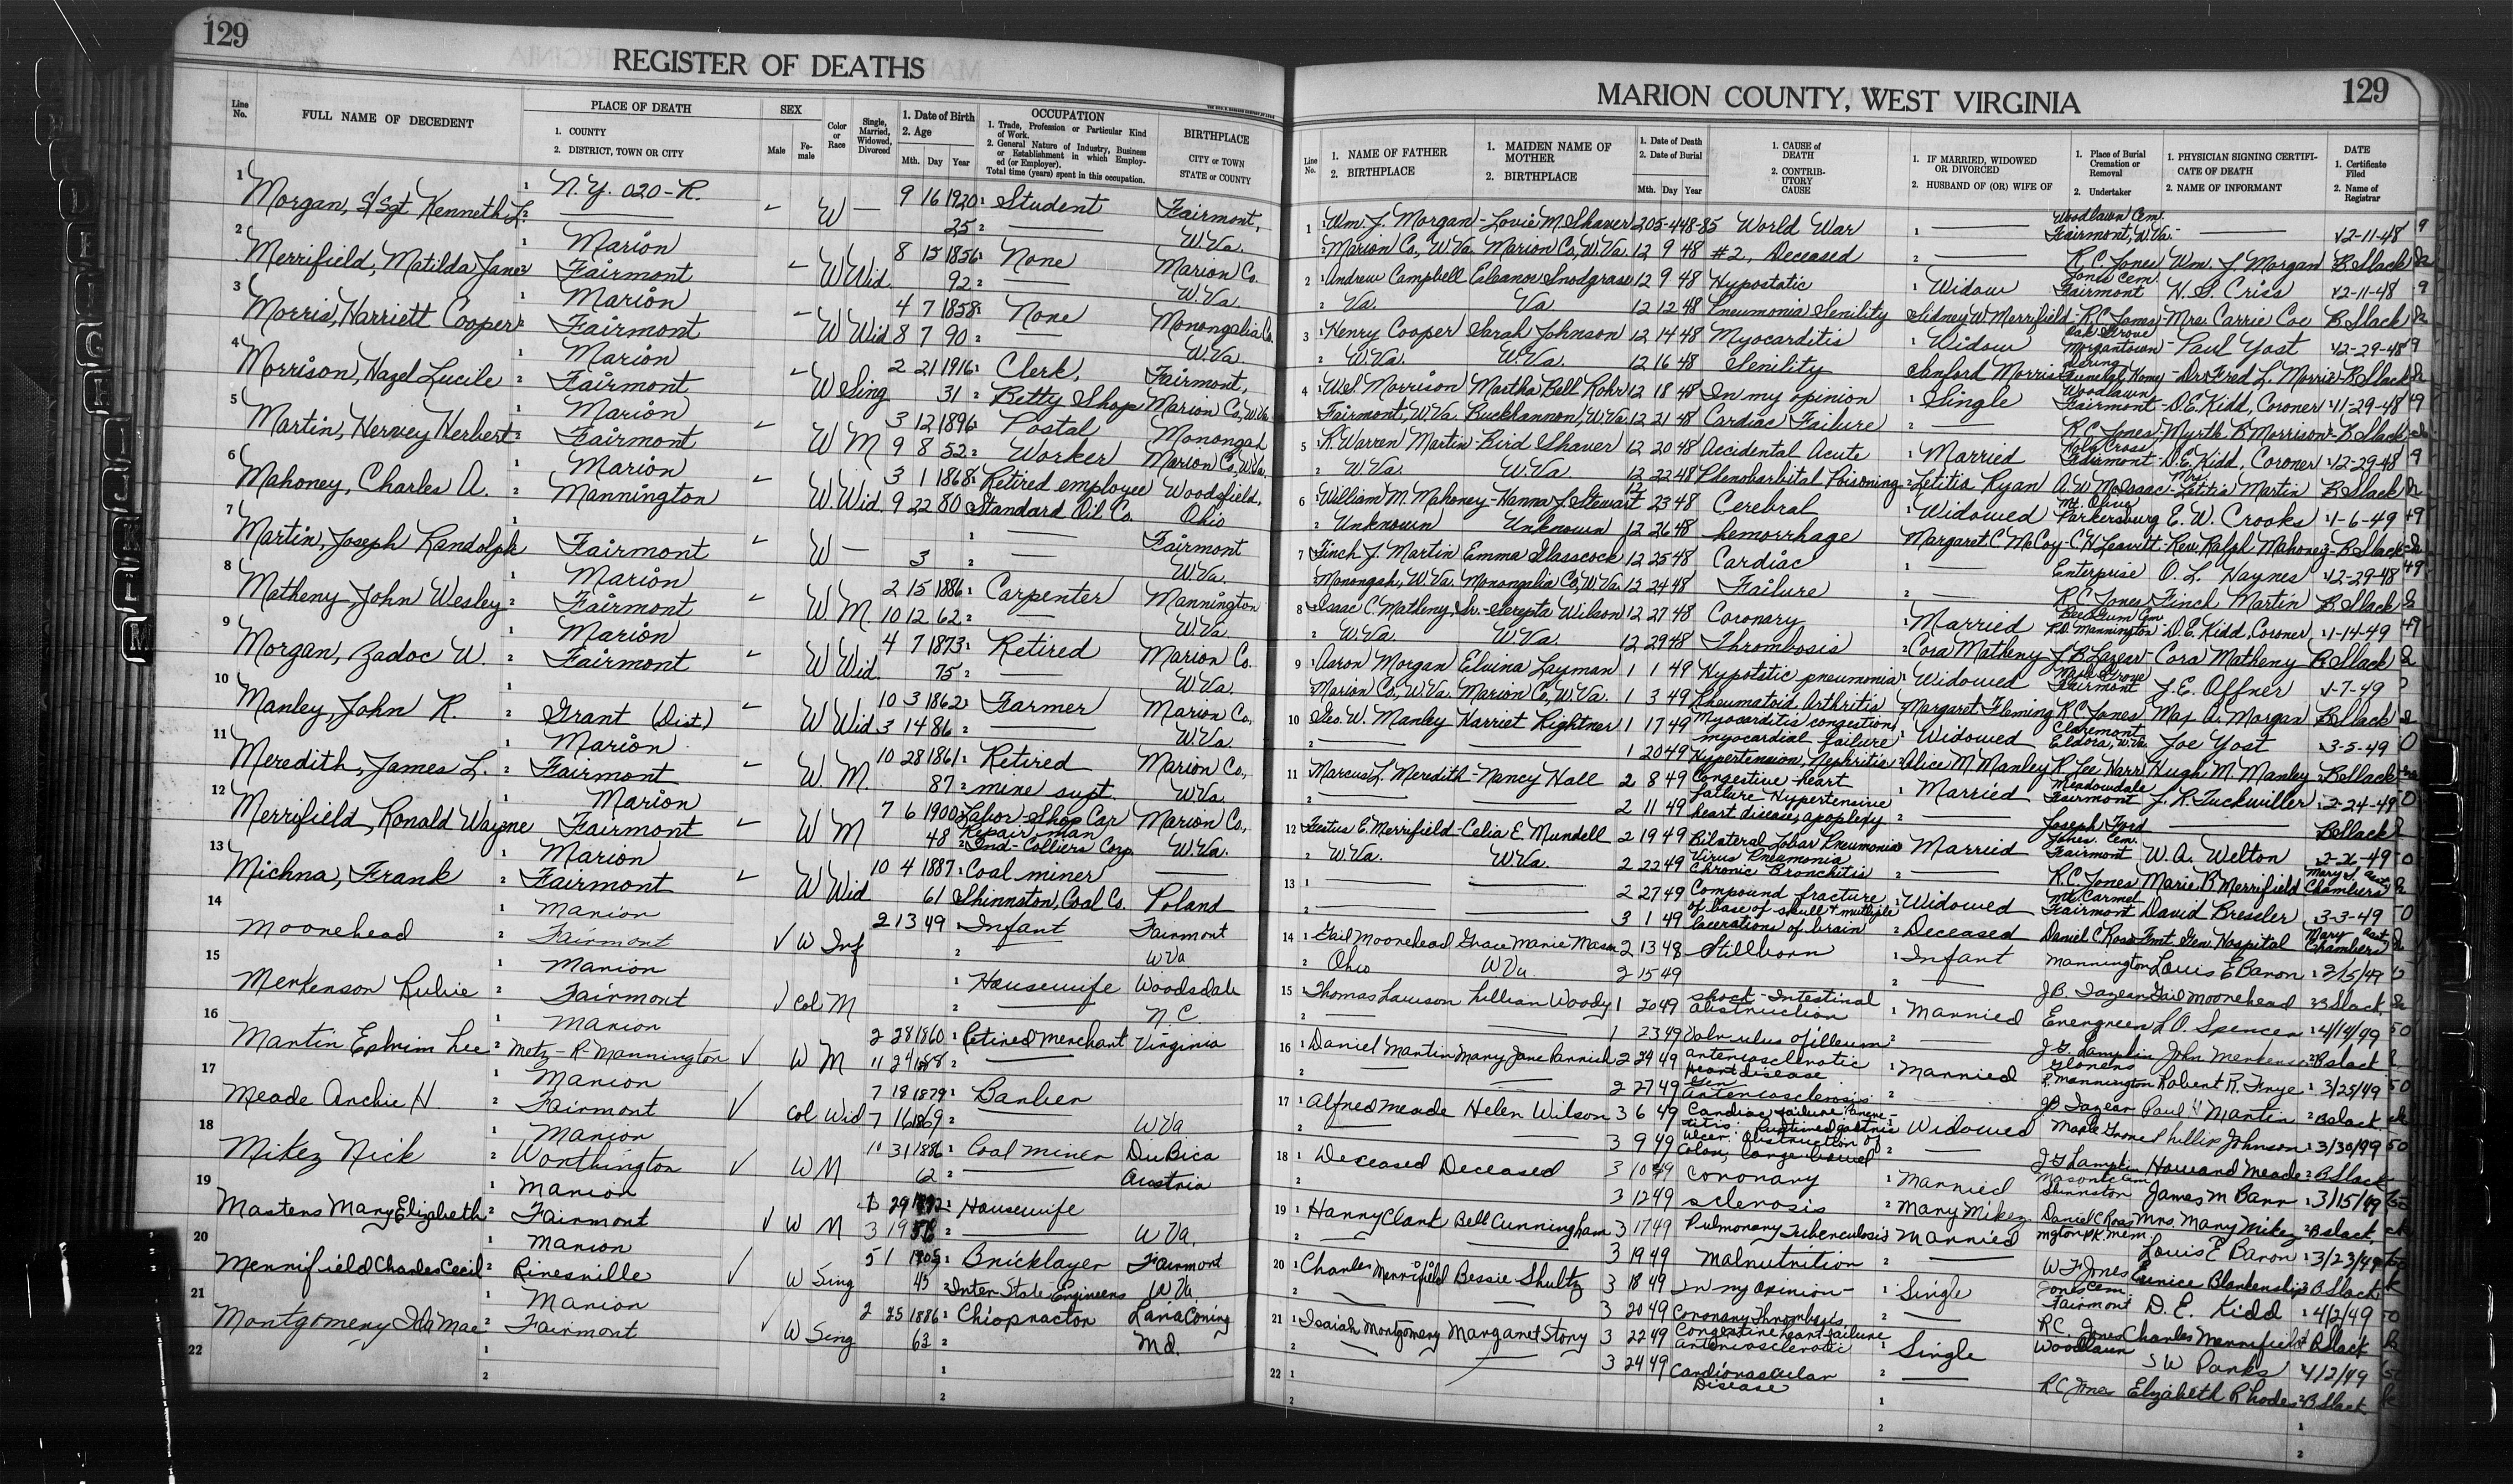 129
REGISTER OF DEATHS
Line No.
FULL NAME OF DECEDENT
PLACE OF DEATH
1. COUNTY
2. DISTRICT, TOWN OR CITY
SEX
Male
Fe-male
Color or Race
Single, Married, Widowed, Divorced
1. Date of Birth
2. Age
Mth. Day Year
OCCUPATION
1. Trade, Profession or Particular Kind of Work.
2. General Nature of Industry, Business or Establishment in which Employ-ed (or Employer).
Total time (years) spent in this occupation.
BIRTHPLACE
CITY or TOWN
STATE or COUNTY
1 Morgan, S/Sgt Kenneth L. 1 N.Y. 020-R. W — 9 16 1920 1 Student Fairmont,
2 —— 25 2 —— W.Va.
2 Merrifield, Matilda Jane 1 Marion W Wid. 8 15 1856 1 None Marion Co.
2 Fairmont 92 2 —— W.Va.
3 Morris, Harriett Cooper 1 Marion W Wid 4 7 1858 1 None Monongalia Co.
2 Fairmont 8 7 90 2 — W.Va.
4 Morrison, Hazel Lucile 1 Marion W Sing 2 21 1916 1 Clerk, Fairmont,
2 Fairmont 31 2 Betty Shop Marion Co, W.Va.
5 Martin, Hervey Herbert 1 Marion W M 3 12 1896 Postal Monongah
2 Fairmont 9 8 52 2 Worker Marion Co, W.Va.
6 Mahoney, Charles A. 1 Marion W Wid. 3 1 1868 1 Retired employee Woodsfield,
2 Mannington 9 22 80 Standard Oil Co. Ohio
7 Martin, Joseph Randolph 1 W — 1 —— Fairmont
2 Fairmont 3 2 W.Va.
8 Matheny John Wesley 1 Marion W M. 2 15 1886 1 Carpenter Mannington
2 Fairmont 10 12 62 2 —— W.Va.
9 Morgan, Zadoc W. 1 Marion W Wid. 4 7 1873 1 Retired Marion Co.
2 Fairmont 75 2 —— W.Va.
10 Manley, John R. 1 W Wid 10 3 1862 1 Farmer Marion Co,
2 Grant (Dist) 3 14 86 2 —— W.Va.
11 Meredith, James L. 1 Marion W. M. 10 28 1861 1 Retired Marion Co.,
2 Fairmont 87 2 mine supt. W.Va.
12 Merrifield, Ronald Wayne 1 Marion W M 7 6 1900 Labor-Shop Car Repair man Marion Co.,
Fairmont 48 2 Ind-Colliers Corp. W.Va.
13 Michna, Frank 1 Marion W Wid 10 4 1887 1 Coal miner ——
2 Fairmont 61 Shinnston, Coal Co. Poland
14 Moorehead 1 Marion ✓ W Inf 2 13 49 1 Infant Fairmont
2 Fairmont 2 W Va
15 Merkenson Lubie 1 Marion ✓ Col M 1 Housewife Woodsdale
2 Fairmont 2 —— N.C.
16 Martin Ephrim Lee 1 Marion ✓ W M 2 28 1860 1 Retired merchant Virginia
2 Metz-R-Mannington 11 24 88 2 ——
17 Meade Archie H. 1 Marion ✓ Col Wid 7 18 1879 1 Barber
2 Fairmont 7 16 2 W Va
18 Mikez Nick 1 Marion ✓ W M 10 31 1886 1 Coal miner DuBica
2 Worthington 62 2 —— Austria
19 Masters Mary Elizabeth 1 Marion ✓ W M 29 1 Housewife
2 Fairmont 3 19 2 —— W Va.
20 Merrifield Charles Cecil 1 Marion ✓ W Sing 5 1 1 Bricklayer Fairmont
2 Rinesville 45 2 Inter State Engineers W Va
21 Montgomery Ida Mae 1 Marion W Sing 2 25 1886 1 Chiopractor Lanaconing
2 Fairmont 63 2 Md.
22 1
2
MARION COUNTY, WEST VIRGINIA
129
Line No.
1. NAME OF FATHER
2. BIRTHPLACE
1. MAIDEN NAME OF MOTHER
2. BIRTHPLACE
1. Date of Death
2. Date of Burial
Mth. Day Year
1. CAUSE of DEATH
2. CONTRIB-UTORY CAUSE
1. IF MARRIED, WIDOWED OR DIVORCED
2. HUSBAND OF (OR) WIFE OF
1. Place of Burial Cremation or Removal
2. Undertaker
1. PHYSICIAN SIGNING CERTIFI-CATE OF DEATH
2. NAME OF INFORMANT
DATE
1. Certificate Filed
2. Name of Registrar
1 Wm. J. Morgan - Lovie M. Shaver 205-448-85 World War 1 —— Woodlawn Cem. Fairmont, W.Va. —— 12-11-48
2 Marion Co., W.Va. Marion Co, W.Va. 12 9 48 #2, Deceased 2 —— R.C. Jones Wm. J. Morgan B Slack
2 Andrew Campbell Eleanor Snodgrass 12 9 48 Hypostatic 1 Widow Jones Cem. Fairmont H. S. Criss 12-11-48
2 Va. Va 12 12 48 Pneumonia Senility Sidney W Merrifield - R.C. Jones - Mrs. Carrie Coe B Slack
3 Henry Cooper Sarah Johnson 12 14 48 Myocarditis 1 Widow Oak Grove Morgantown - Paul Yost 12-29-48
2 W.Va. W.Va. 12 16 48 Senility Sanford Morris Funeral Home - Dr. Fred L. Morris B Slack
4 W.S. Morrison Martha Bell Rohr 12 18 48 In my opinion 1 Single Woodlawn Fairmont - D.E. Kidd, Coroner 11-29-48
Fairmont, W.Va. Buckhannon, W.Va. 12 21 48 Cardiac Failure 2 —— R.C. Jones, Myrtle B Morrison B Slack
5 R. Warren Martin - Bird Shaver 12 20 48 Accidental Acute 1 Married Holy Cross Fairmont - D.E. Kidd, Coroner 12-29-48
2 W.Va. W.Va. 12 22 48 Phenobarbital Poisoning 2 Letitia Ryan A.W. McIsaac - Letitia Martin B Slack
6 William M. Mahoney - Hanna J. Stewart 12 23 48 Cerebral 1 Widowed Mt. Olive Parkersburg E. W. Crooks 1-6-49
2 Unknown Unknown 12 26 48 hemorrhage Margaret C McCoy - C H Leavitt - Rev. Ralph Mahoney - B Slack
7 Finch J. Martin Emma Glasscock 12 25 48 Cardiac 1 —— Enterprise O. L. Haynes 12-29-48
Monongah, W.Va. Monongalia Co, W.Va. 12 24 48 Failure 2 —— R.C. Jones Finch Martin B Slack
8 Isaac C. Matheny, Sr. - Serepta Wilson 12 27 48 Coronary 1 Married Bee Gum Cem. R.D. Mannington - D.E. Kidd, Coroner, 1-14-49
2 W.Va. W.Va. 12 29 48 Thrombosis 2 Cora Matheny J B Lazear - Cora Matheny B Slack
9 Aaron Morgan Elvina Layman 1 1 49 Hypotatic pneumonia Widowed Maple Grove Fairmont J. E. Offner 1-7-49
Marion Co., W.Va. Marion Co, W.Va. 1 3 49 Rheumatoid Arthritis Margaret Fleming R.C. Jones May A. Morgan B Slack
10 Geo. W. Manley Harriet Rightner 1 17 49 Myocarditis congestion myocardial failure Widowed Claremont Eldora, W.Va. Joe Yost 3-5-49
2 —— —— 1 20 49 Hypertension, Nephritis Alice M Manley R Lee Harr Hugh M. Manley B Slack
11 Marcus L. Meredith - Nancy Hall 2 8 49 Congestive heart failure Hypertensive 1 Married Meadowdale Fairmont J. R. Tuckwiller 2-24-49
2 —— —— 2 11 49 heart disease, apoplexy 2 —— Joseph Ford —— B Slack
12 Festus E. Merrifield - Celia E. Mundell 2 19 49 Bilateral Lobar Pneumonia Married Jones Cem. Fairmont W. A. Welton 2-26-49
2 W.Va. W.Va. 2 22 49 Virus Pneumonia Chronic Bronchitis 2 —— R.C. Jones Marie B Merrifield Chambers
13 1 —— —— 2 27 49 Compound fracture of base of skull & multiple 1 Widowed Mt. Carmel Fairmont David Bressler 3-3-49
2 —— —— 3 1 49 lacerations of brain 2 Deceased Daniel C Ross Fmt. Gen. Hospital Mary Chambers
14 1 Gail Moorehead Grace Marie Mason 2 13 48 Stillborn 1 Infant Mannington Louis E Baron
2 Ohio W Va. 2 15 49 2 —— J.B. Lazear Gail Moorehead B Slack
15 1 Thomas Lawson Lillian Woody 1 20 49 shock-Intestinal obstruction 1 Married Evergreen L O. Spencer 4/14/49
2 —— —— 1 23 49 Valvulus of illeum 2 —— J G. Lampkin John Merkenson B Slack
16 1 Daniel Martin Mary Jane Parrish 2 24 49 arteriosclerotic heart disease 1 Married R. Mannington Robert R. Frye 3/25/49
2 —— —— 2 27 49 Gen arteriosclerosis 2 —— JB Lazear Paul H Martin 2 B Slack
17 1 Alfred Meade Helen Wilson 3 6 49 Cardiac failure Pancre-titis: Ruptured gastric Widowed Maple Grove Phillip Johnson 3/30/49
2 —— —— 3 9 49 ulcer: obstruction of colon, large bowel 2 —— J G Lampkin Howard Meade 2 B Slack
18 1 Deceased Deceased 3 10 49 Coronary 1 Married Masonic Cem Shinnston James M Barr 3/15/49
2 3 12 49 sclerosis 2 Mary Mikez Daniel C Ross Mrs. Mary Mikez 2 B Slack
19 1 Harry Clark Bell Cunningham 3 17 49 Pulmonary Tuberculosis Married Mgton PK. Mem. Louis E Baron 3/23/49
2 —— 3 19 49 Malnutrition —— W F Jones Eunice Blankenship B Slack
20 1 Charles Merrifield Bessie Shultz 3 18 49 In my opinion - 1 Single Jones Cem Fairmont D. E. Kidd 4/2/49
2 —— 3 20 49 Coronary Thrombosis 2 —— R.C. Jones Charles Merrifield B Slack
21 1 Isaiah Montgomery Margaret Story 3 22 49 Congestive heart failure arteriosclerotic 1 Single Woodlawn S W Parks 4/2/49
2 —— 3 24 49 Cardiovascular Disease 2 —— R C Jones Elizabeth Rhodes 2 B Slack
22 1
2